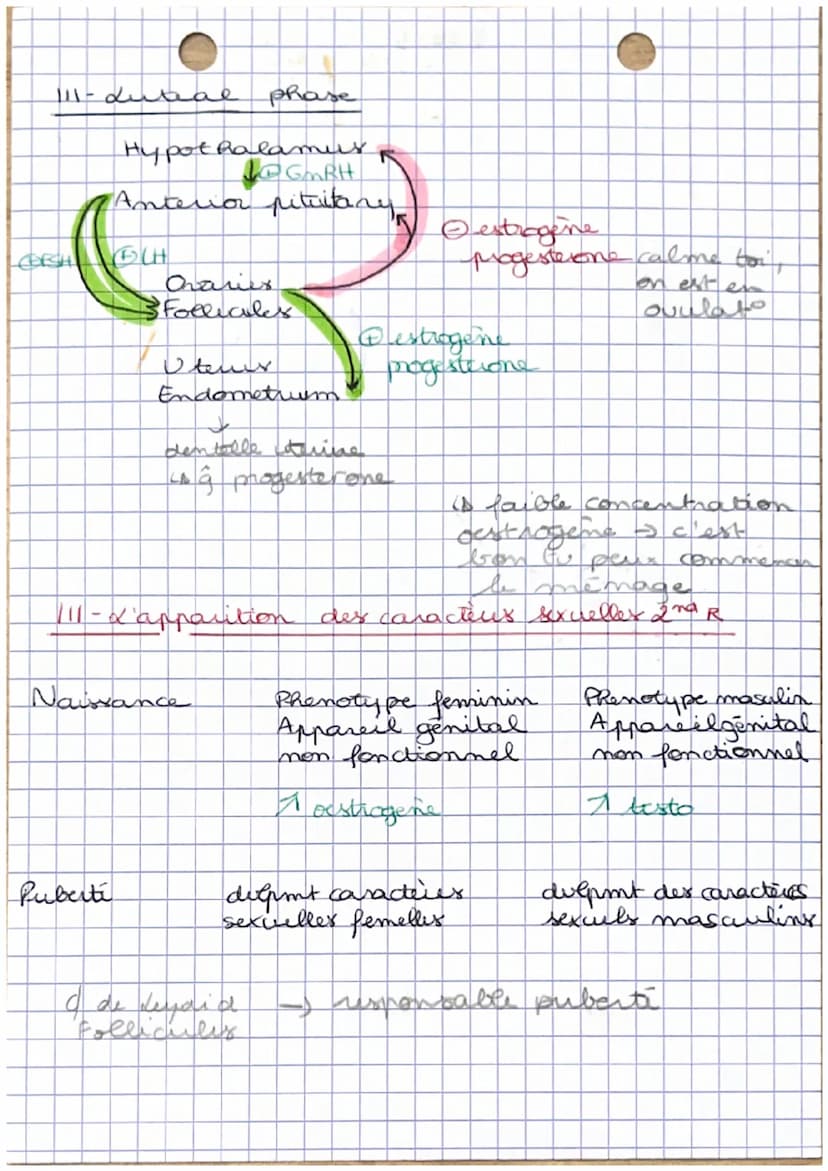 III - Luteal phase
Hypothalamus
⊕ GnRH
Anterior pituitary
⊖ estrogène
progesterone calme toi,
on est en
ovulat°
⊕FSH ⊕LH
Ovaries
Follicules
⊕ estrogène
progesterone
Uterus
Endometrium
↓
dentelle uterine
↳ ĝ progesterone
↳ faible concentration
oestrogène → c'est
bon tu peux commencer
le ménage
III - L'apparition des caractères sexuelles 2nd R
Naissance Phenotype feminin Phenotype masculin
Appareil génital Appareil génital
non fonctionnel non fonctionnel
↗ oestrogène ↗ testo
Puberté dvlpmt caractères dvlpmt des caractères
sexuelles femelles sexuels masculins
de Leydid → responsable puberté
Follicules